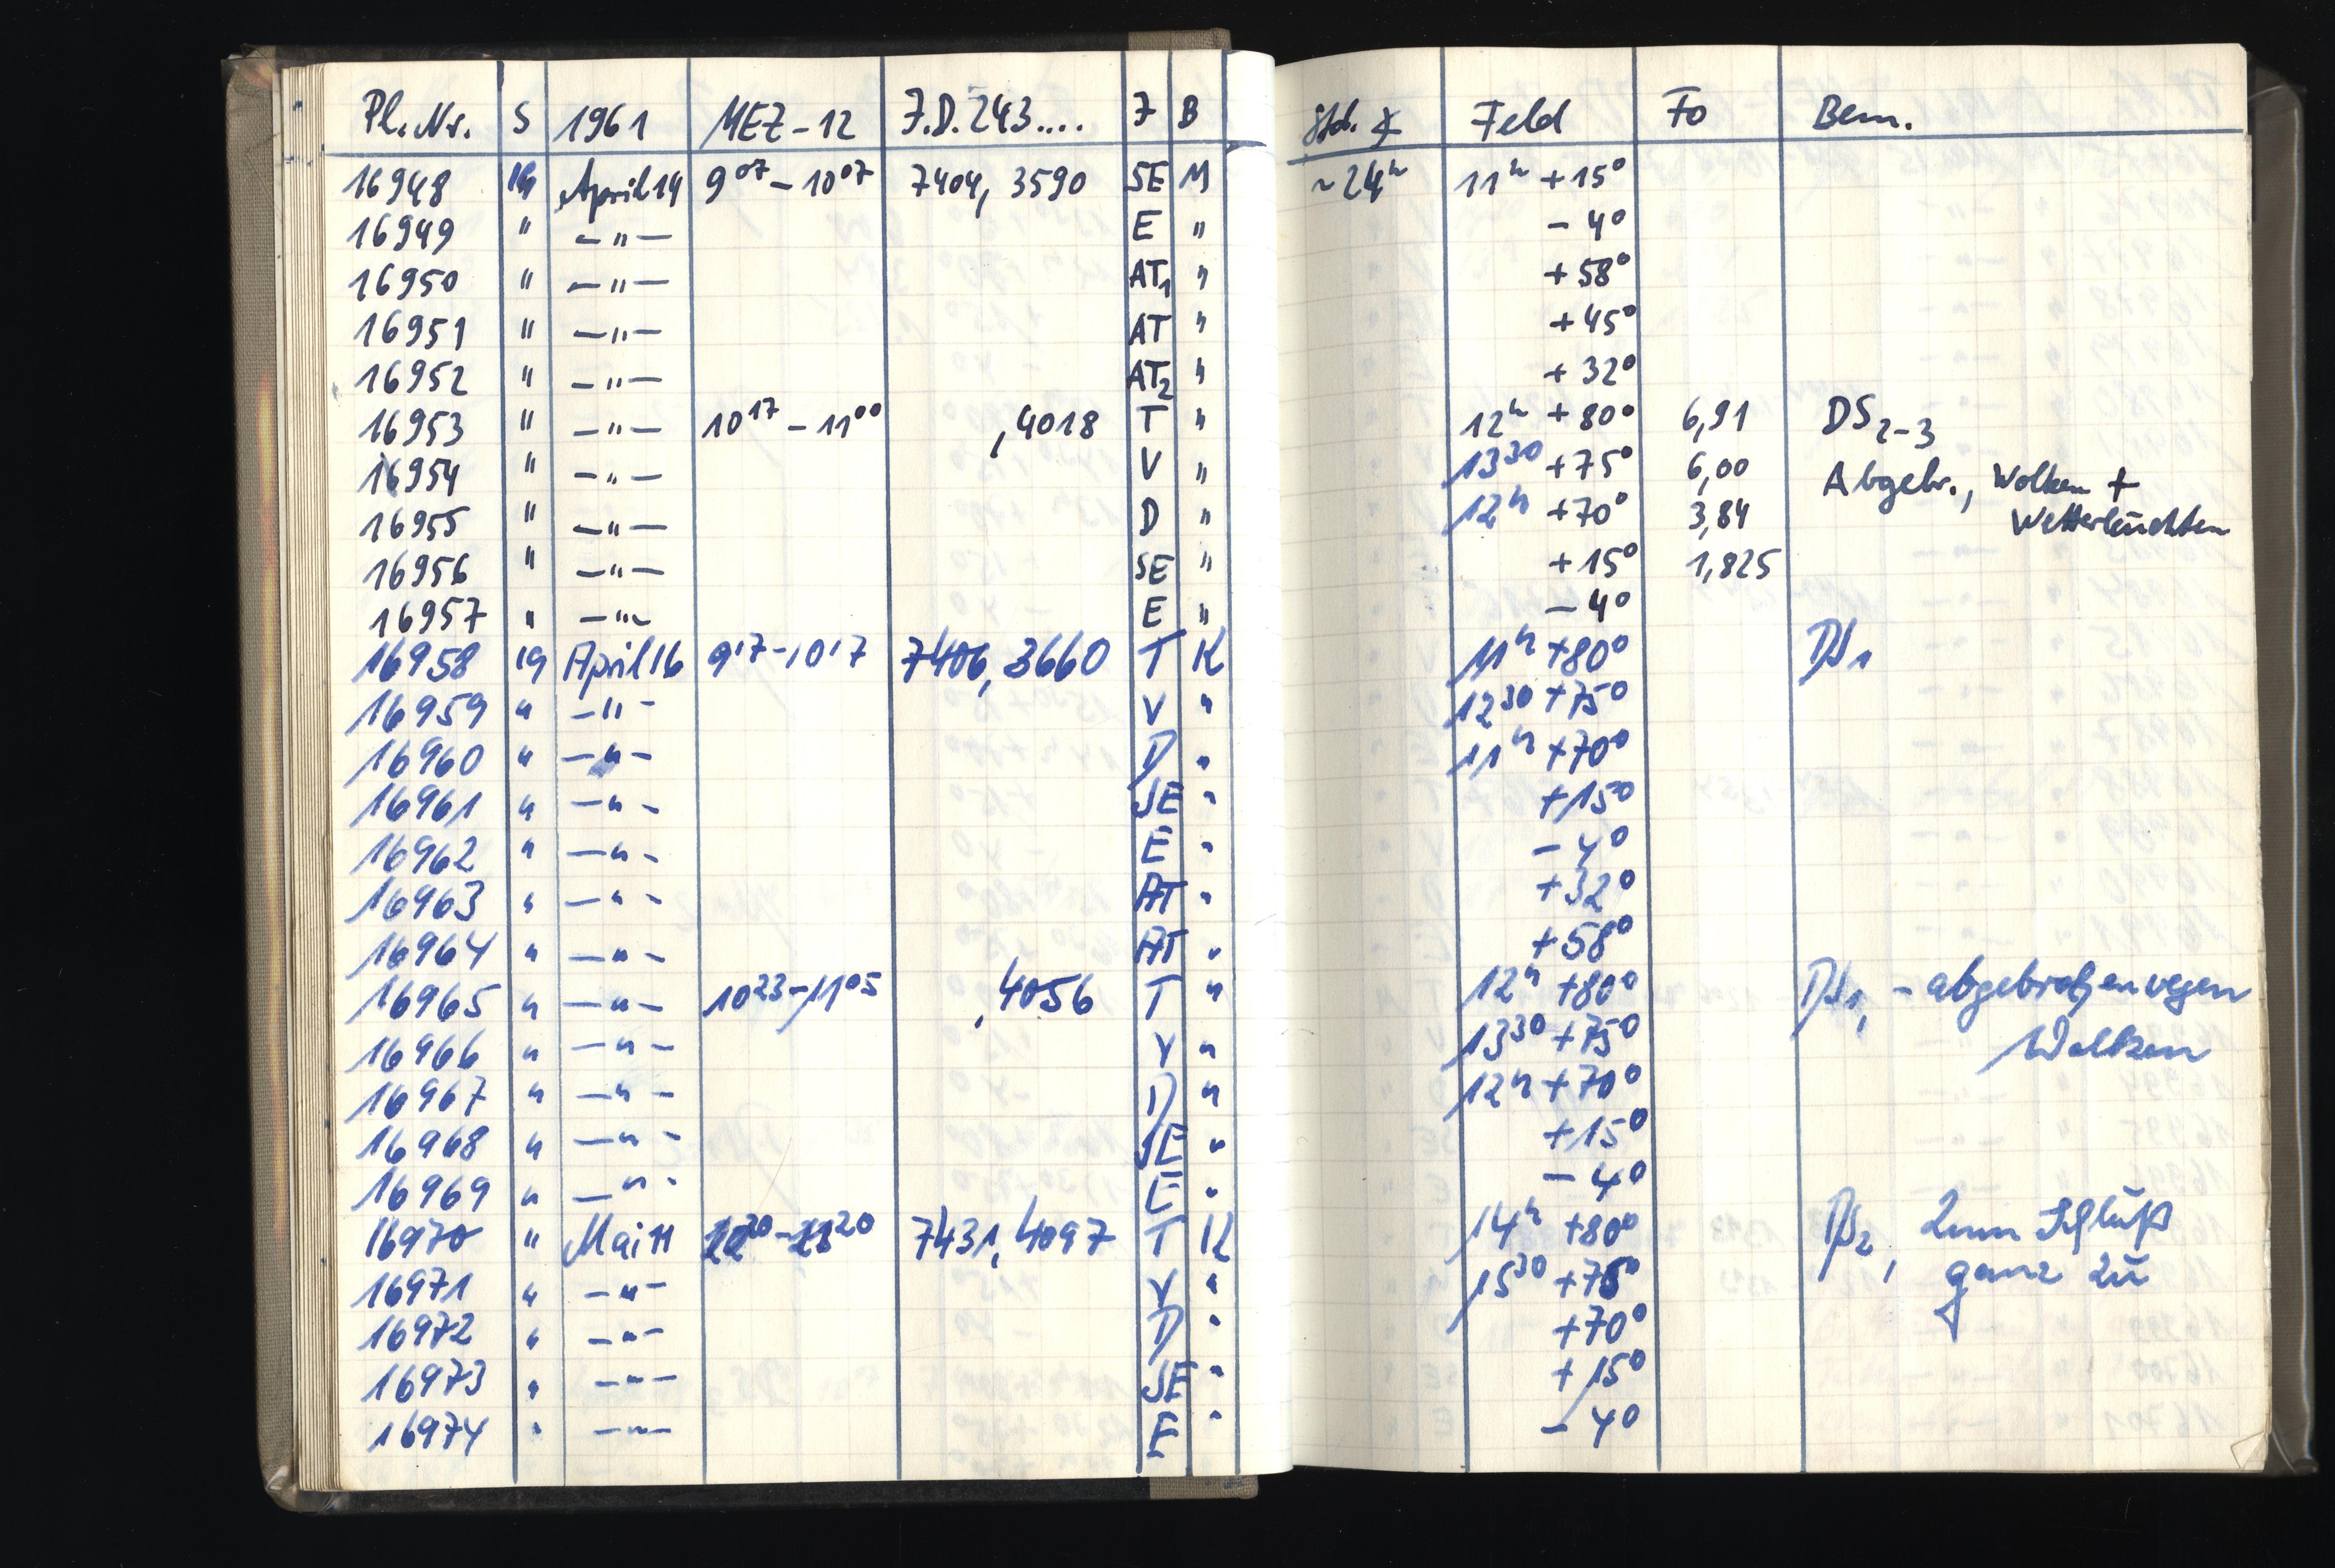 Pl. Nr. S 1961 MEZ-12 J.D. 243.... J B Std. ∗ Feld Fo Bem.
16948 19 April 14 9⁰⁷ - 10⁰⁷ 7404, 3590 SE M ~24ʰ 11ʰ +15°
16949 " -"- E " -4°
16950 " -"- AT₁ " +58°
16951 " -"- AT " +45°
16952 " -"- AT₂ " +32°
16953 " -"- 10¹⁷ - 11⁰⁰ ,4018 T " 12ʰ +80° 6,91 DS₂₋₃
16954 " -"- V " 13³⁰ +75° 6,00 Abgebr., Wolken +
16955 " -"- D " 12ʰ +70° 3,84 Wetterleuchten
16956 " -"- SE " +15° 1,825
16957 " -"- E " -4°
16958 19 April 16 9¹⁷ - 10¹⁷ 7406, 3660 T K 11ʰ +80° DS₁
16959 " -"- V " 12³⁰ +75°
16960 " -"- D " 11ʰ +70°
16961 " -"- SE " +15°
16962 " -"- E " -4°
16963 " -"- AT " +32°
16964 " -"- AT " +58°
16965 " -"- 10²³ - 11⁰⁵ ,4056 T " 12ʰ +80° DS₁, - abgebrochen wegen
16966 " -"- V " 13³⁰ +75° Wolken
16967 " -"- D " 12ʰ +70°
16968 " -"- SE " +15°
16969 " -"- E " -4°
16970 " Mai 11 7431, 4097 T K 14ʰ +80° DS₂, Zum Schluß
16971 " -"- V " 15³⁰ +75° ganz zu
16972 " -"- D " +70°
16973 " -"- SE " +15°
16974 " -"- E " -4°